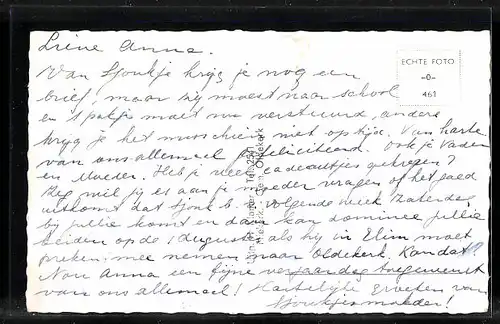 Lieve Anna.
Van Sjoukje krijg je nog een
brief, maar zij moest naar school
en 't pakje moest nu verstuurd, anders
krijg je het misschien niet op tijd. Van harte
van ons allemaal gefeliciteerd. Ook je Vader
en Moeder. Heb je veel cadeautjes gekregen?
Zeg wil jij es aan je moeder vragen of het goed
uitkomt dat Sjouk. b. volgende week Zaterdag
bij jullie komt en dan kan dominee jullie
beiden op de 1 Augustus als hij in Elim moet
preken mee nemen naar Oldekerk. Kan dat?
Nou Anna een fijne verjaardag toegewenst
van ons allemaal! Hartelijke groeten van
Sjoukjes moeder!
ECHTE FOTO
-0-
461
Oldekerk